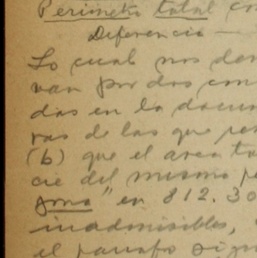 Perimetro total con
Diferencia —
Lo cual nos dem
van por dos con
das en la docum
ras de las que per
(b) que el area to
cie del mismo pe
gono" en 812.30
inadmisibles,
el parrafo sigu